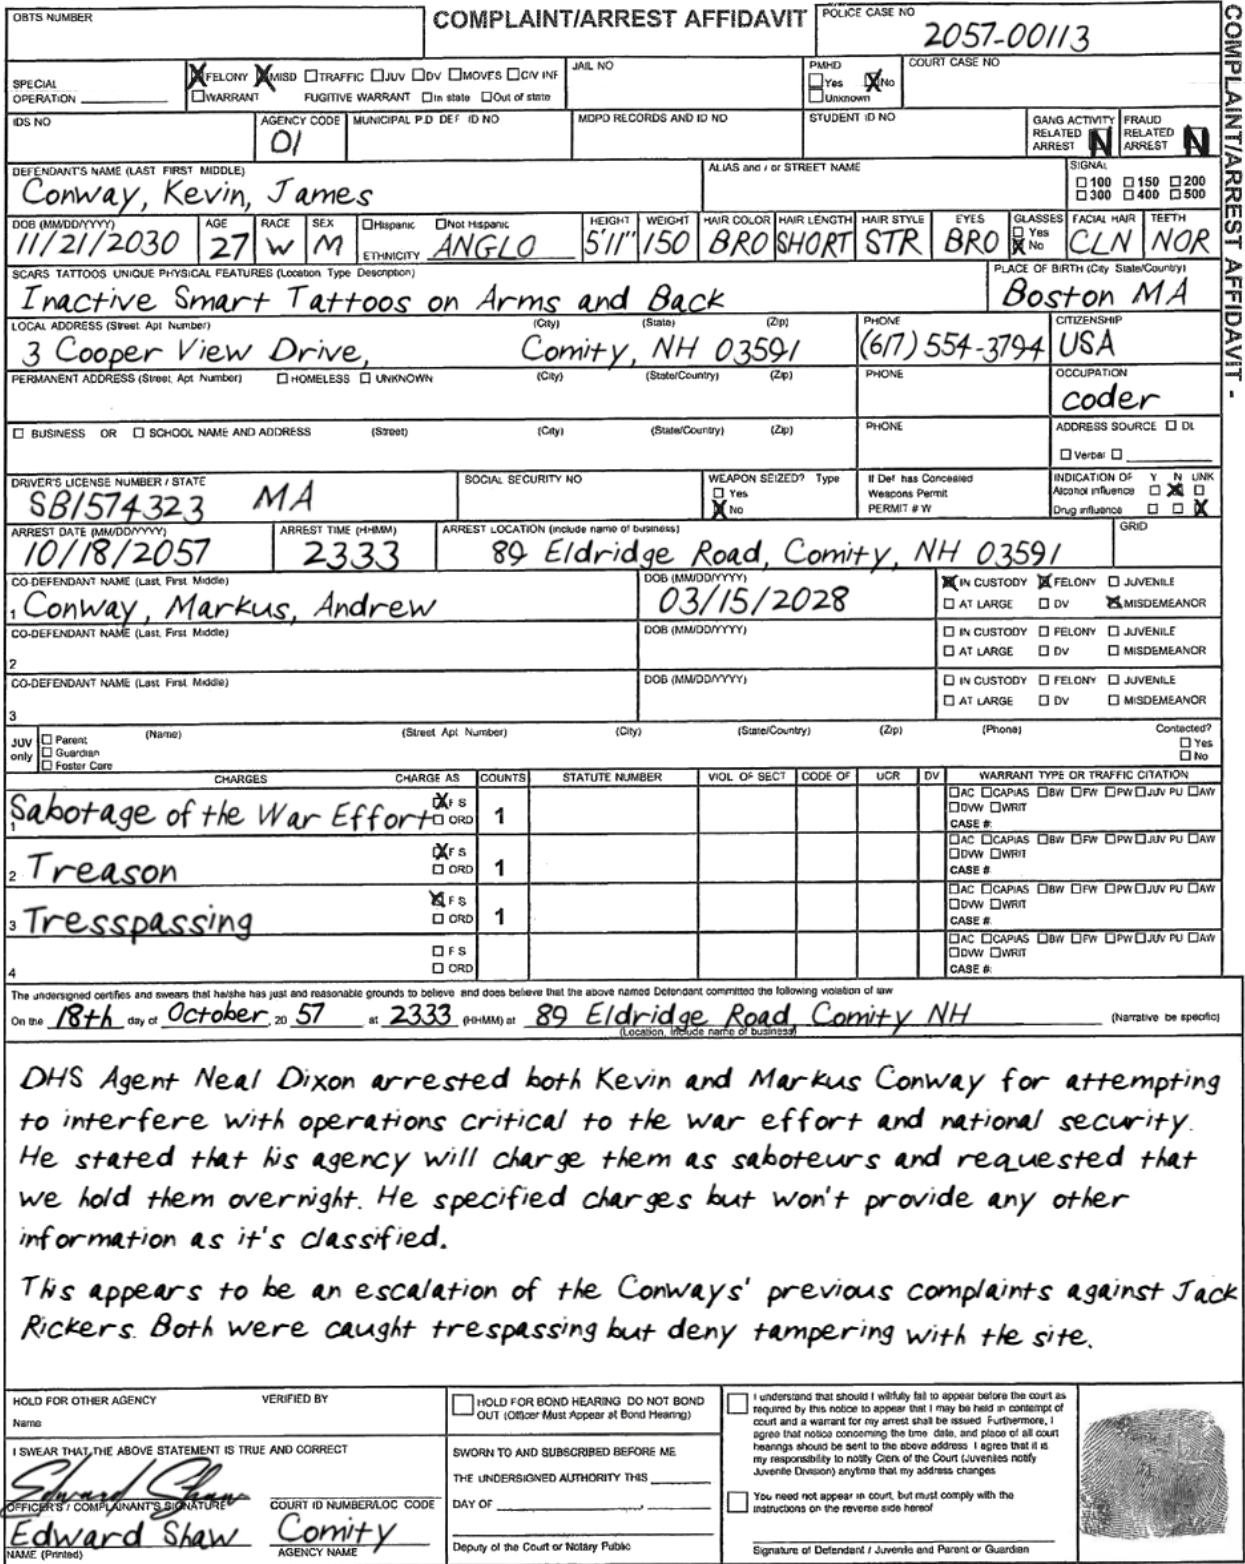 OBTS NUMBER
COMPLAINT/ARREST AFFIDAVIT
POLICE CASE NO
2057-00113
COMPLAINT/ARREST AFFIDAVIT -
SPECIAL OPERATION
FELONY MISD TRAFFIC JUV DV MOVES CIV INF
WARRANT FUGITIVE WARRANT In state Out of state
JAIL NO
PMHD
Yes No
Unknown
COURT CASE NO
IDS NO
AGENCY CODE
01
MUNICIPAL P.D DEF ID NO
MDPD RECORDS AND ID NO
STUDENT ID NO
GANG ACTIVITY RELATED ARREST N
FRAUD RELATED ARREST N
DEFENDANT'S NAME (LAST FIRST MIDDLE)
Conway, Kevin, James
ALIAS and / or STREET NAME
SIGNAL
100 150 200
300 400 500
DOB (MM/DD/YYYY)
11/21/2030
AGE
27
RACE
W
SEX
M
Hispanic Not Hispanic
ETHNICITY ANGLO
HEIGHT
5'11"
WEIGHT
150
HAIR COLOR
BRO
HAIR LENGTH
SHORT
HAIR STYLE
STR
EYES
BRO
GLASSES
Yes
No
FACIAL HAIR
CLN
TEETH
NOR
SCARS TATTOOS UNIQUE PHYSICAL FEATURES (Location Type Description)
Inactive Smart Tattoos on Arms and Back
PLACE OF BIRTH (City State/Country)
Boston MA
LOCAL ADDRESS (Street Apt Number) (City) (State) (Zip)
3 Cooper View Drive, Comity, NH 03591
PHONE
(617) 554-3794
CITIZENSHIP
USA
PERMANENT ADDRESS (Street, Apt Number) HOMELESS UNKNOWN (City) (State/Country) (Zip)
PHONE
OCCUPATION
coder
BUSINESS OR SCHOOL NAME AND ADDRESS (Street) (City) (State/Country) (Zip)
PHONE
ADDRESS SOURCE DL
Verbal
DRIVER'S LICENSE NUMBER / STATE
SB1574323 MA
SOCIAL SECURITY NO
WEAPON SEIZED? Type
Yes
No
If Def has Concealed
Weapons Permit
PERMIT # W
INDICATION OF Y N UNK
Alcohol influence
Drug influence
ARREST DATE (MM/DD/YYYY)
10/18/2057
ARREST TIME (HHMM)
2333
ARREST LOCATION (include name of business)
89 Eldridge Road, Comity, NH 03591
GRID
CO-DEFENDANT NAME (Last, First Middle)
1 Conway, Markus, Andrew
DOB (MM/DD/YYYY)
03/15/2028
IN CUSTODY FELONY JUVENILE
AT LARGE DV MISDEMEANOR
CO-DEFENDANT NAME (Last, First Middle)
2
DOB (MM/DD/YYYY)
IN CUSTODY FELONY JUVENILE
AT LARGE DV MISDEMEANOR
CO-DEFENDANT NAME (Last First Middle)
3
DOB (MM/DD/YYYY)
IN CUSTODY FELONY JUVENILE
AT LARGE DV MISDEMEANOR
JUV only
Parent
Guardian
Foster Care
(Name) (Street Apt Number) (City) (State/Country) (Zip) (Phone)
Contacted?
Yes
No
CHARGES CHARGE AS COUNTS STATUTE NUMBER VIOL OF SECT CODE OF UCR DV WARRANT TYPE OR TRAFFIC CITATION
1 Sabotage of the War Effort F S ORD 1
AC CAPIAS BW FW PW JUV PU AW
DVW WRIT
CASE #
2 Treason F S ORD 1
AC CAPIAS BW FW PW JUV PU AW
DVW WRIT
CASE #
3 Tresspassing F S ORD 1
AC CAPIAS BW FW PW JUV PU AW
DVW WRIT
CASE #
4 F S ORD
AC CAPIAS BW FW PW JUV PU AW
DVW WRIT
CASE #
The undersigned certifies and swears that he/she has just and reasonable grounds to believe and does believe that the above named Defendant committed the following violation of law
On the 18th day of October, 20 57 at 2333 (HHMM) at 89 Eldridge Road, Comity NH (Narrative be specific)
(Location, include name of business)
DHS Agent Neal Dixon arrested both Kevin and Markus Conway for attempting
to interfere with operations critical to the war effort and national security.
He stated that his agency will charge them as saboteurs and requested that
we hold them overnight. He specified charges but won't provide any other
information as it's classified.
This appears to be an escalation of the Conways' previous complaints against Jack
Rickers. Both were caught trespassing but deny tampering with the site.
HOLD FOR OTHER AGENCY VERIFIED BY
Name
I SWEAR THAT THE ABOVE STATEMENT IS TRUE AND CORRECT
Edward Shaw
OFFICER'S / COMPLAINANT'S SIGNATURE COURT ID NUMBER/LOC CODE
Edward Shaw Comity
NAME (Printed) AGENCY NAME
HOLD FOR BOND HEARING DO NOT BOND
OUT (Officer Must Appear at Bond Hearing)
SWORN TO AND SUBSCRIBED BEFORE ME
THE UNDERSIGNED AUTHORITY THIS
DAY OF
Deputy of the Court or Notary Public
I understand that should I willfully fail to appear before the court as
required by this notice to appear that I may be held in contempt of
court and a warrant for my arrest shall be issued Furthermore, I
agree that notice concerning the time date, and place of all court
hearings should be sent to the above address I agree that it is
my responsibility to notify Clerk of the Court (Juveniles notify
Juvenile Division) anytime that my address changes
You need not appear in court, but must comply with the
instructions on the reverse side hereof
Signature of Defendant / Juvenile and Parent or Guardian